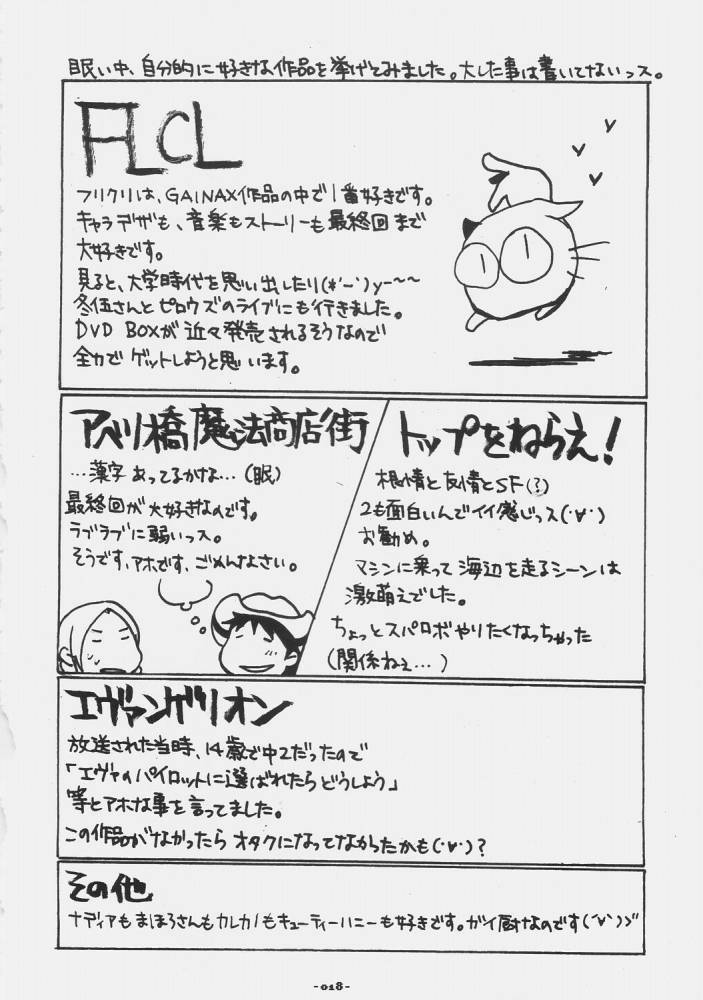 眠い中、自分的に好きな作品を挙げてみました。大した事は書いてないっス。
FLCL
フリクリは、GAINAX作品の中で1番好きです。
キャラデザも、音楽もストーリーも最終回まで
大好きです。
見ると、大学時代を思い出したり(*'ー`)y-~~
冬伍さんとピロウズのライブにも行きました。
DVD BOXが近々発売されるそうなので
全力でゲットしようと思います。
アベノ橋魔法商店街
…漢字あってるかな…(眠)
最終回が大好きなのです。
ラブラブに弱いっス。
そうです、アホです、ごめんなさい。
トップをねらえ!
根性と友情とSF(?)
2も面白いんでイイ感じっス(・∀・)
お勧め。
マシンに乗って海辺を走るシーンは
激萌えでした。
ちょっとスパロボやりたくなっちゃった
(関係ねぇ…)
エヴァンゲリオン
放送された当時、14歳で中2だったので
「エヴァのパイロットに選ばれたらどうしよう」
等とアホな事を言ってました。
この作品がなかったらオタクになってなかったかも(・∀・)?
その他
ナディアもまほろさんもカレカノもキューティーハニーも好きです。ガイ厨なのです(´∀`)ゞ
-018-